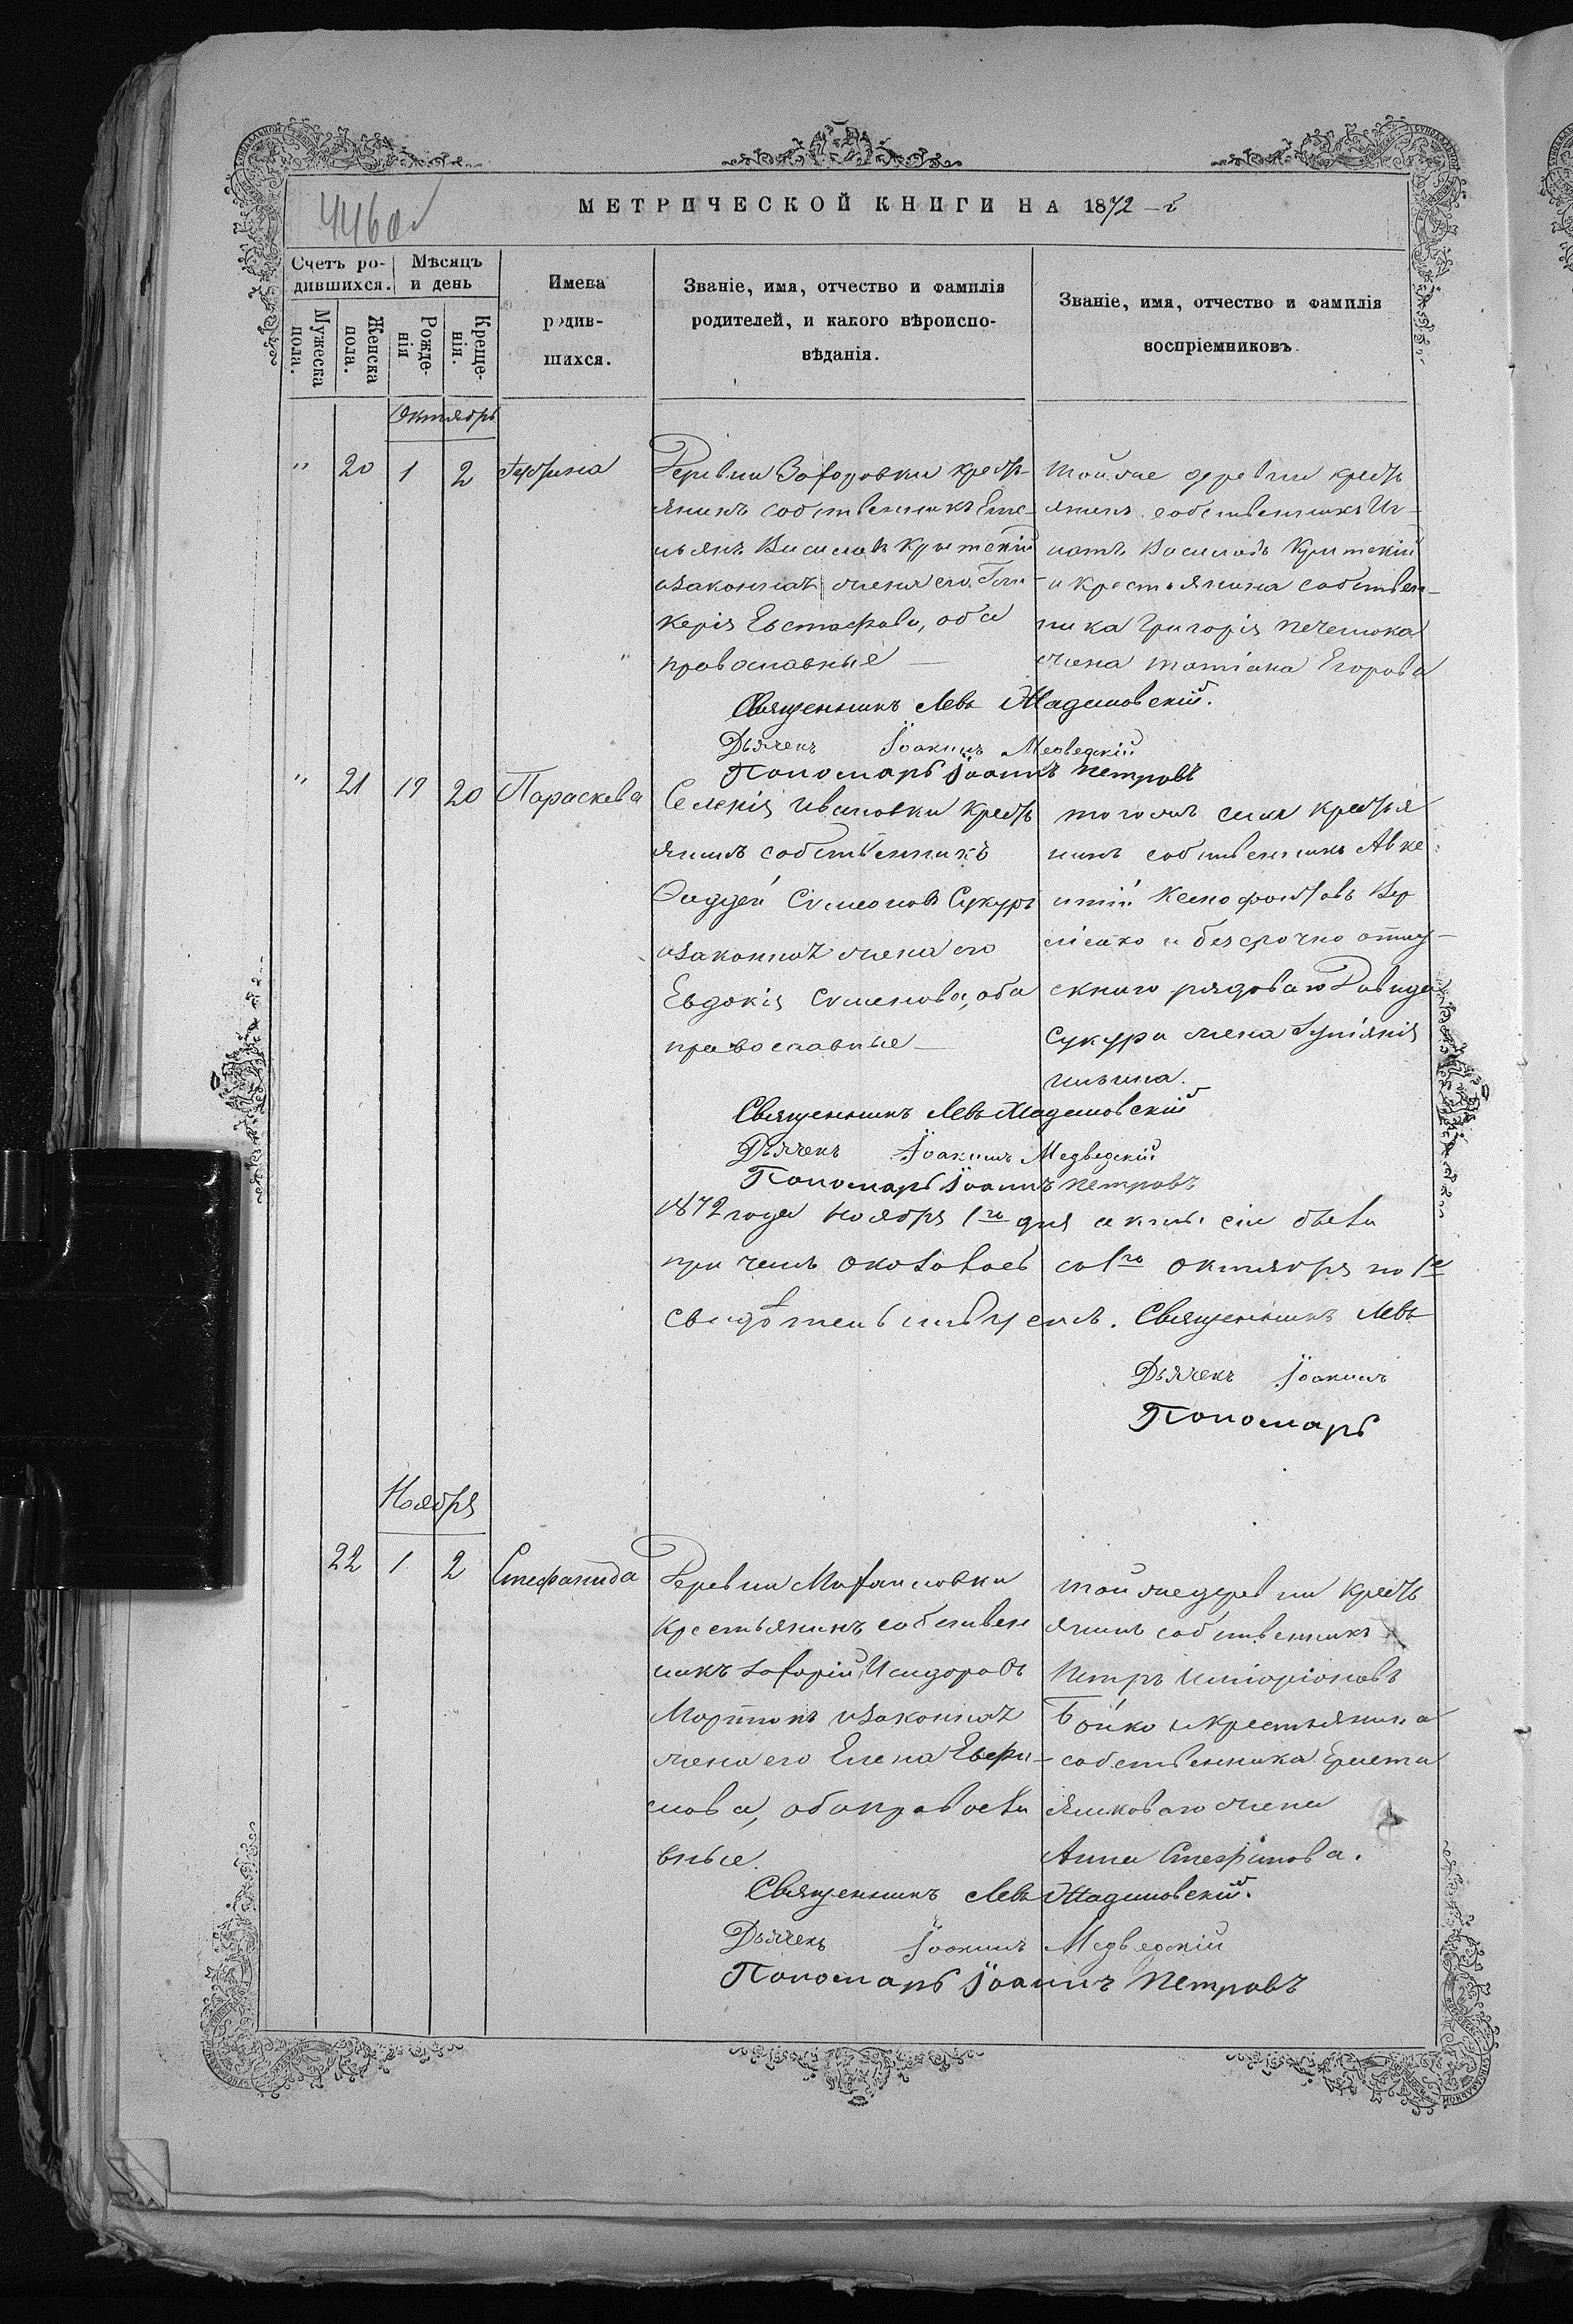 МЕТРИЧЕСКОЙ КНИГИ НА 1872-й
446 об
Счетъ ро-
дившихся.
Мѣсяцъ
и день
Имена
родив-
шихся.
Званіе, имя, отчество и фамилія
родителей, и какого вѣроиспо-
вѣданія.
Званіе, имя, отчество и фамилія
воспріемниковъ.
Мужеска
пола.
Женска
пола.
Рожде-
нія
Креще-
нія.
Октябрь
" 20 1 2
Деревни кресть-
янинъ собственникъ Еме-
льянъ Василовъ Критскій
изаконная жена его Гли-
керія Евстафова, оба
православные —
тойже деревни кресть
янинъ собственникъ Иг-
натъ Василовъ Критскій
и крестьянина собствен-
ника Григорія Печенюка
жена Татіана Егорова
Священникъ Левъ Жадановскій.
Дьячекъ Іоакимъ Медведскій
Пономарь Іоаннъ Петровъ
" 21 19 20 Параскева
Селенія Ивановки кресть
янинъ собственникъ
Фаддей Симеоновъ Сукуръ
изаконная жена его
Евдокія Сименова, оба
православные —
тогожъ села крестья
нинъ собственникъ Авке
нтій Ксенофонтовъ
и безсрочно отпу-
скного рядоваго Давида
Сукура жена Іуліянія
Ильина.
Священникъ Левъ Жадановскій
Дьячекъ Іоакимъ Медведскій
Пономарь Іоаннъ Петровъ
1872 года Ноября 1го дня сія была
при чемъ оказалось со 1го Октября по 1е
свидѣтельствуемъ. Священникъ Левъ
Дьячекъ Іоакимъ
Пономарь
Ноября
22 1 2 Стефанида
Деревни Михайловки
Крестьянинъ собствен
никъ Захарій Исидоровъ
Мартынъ изаконная
жена его Елена Евфи-
мова, оба правосла
вные.
тойже деревни кресть
янинъ собственникъ
Петръ Иларіоновъ
Бойко и крестьянина
собственника
жена
Анна Стефанова.
Священникъ Левъ Жадановскій.
Дьячекъ Іоакимъ Медведскій
Пономарь Іоаннъ Петровъ